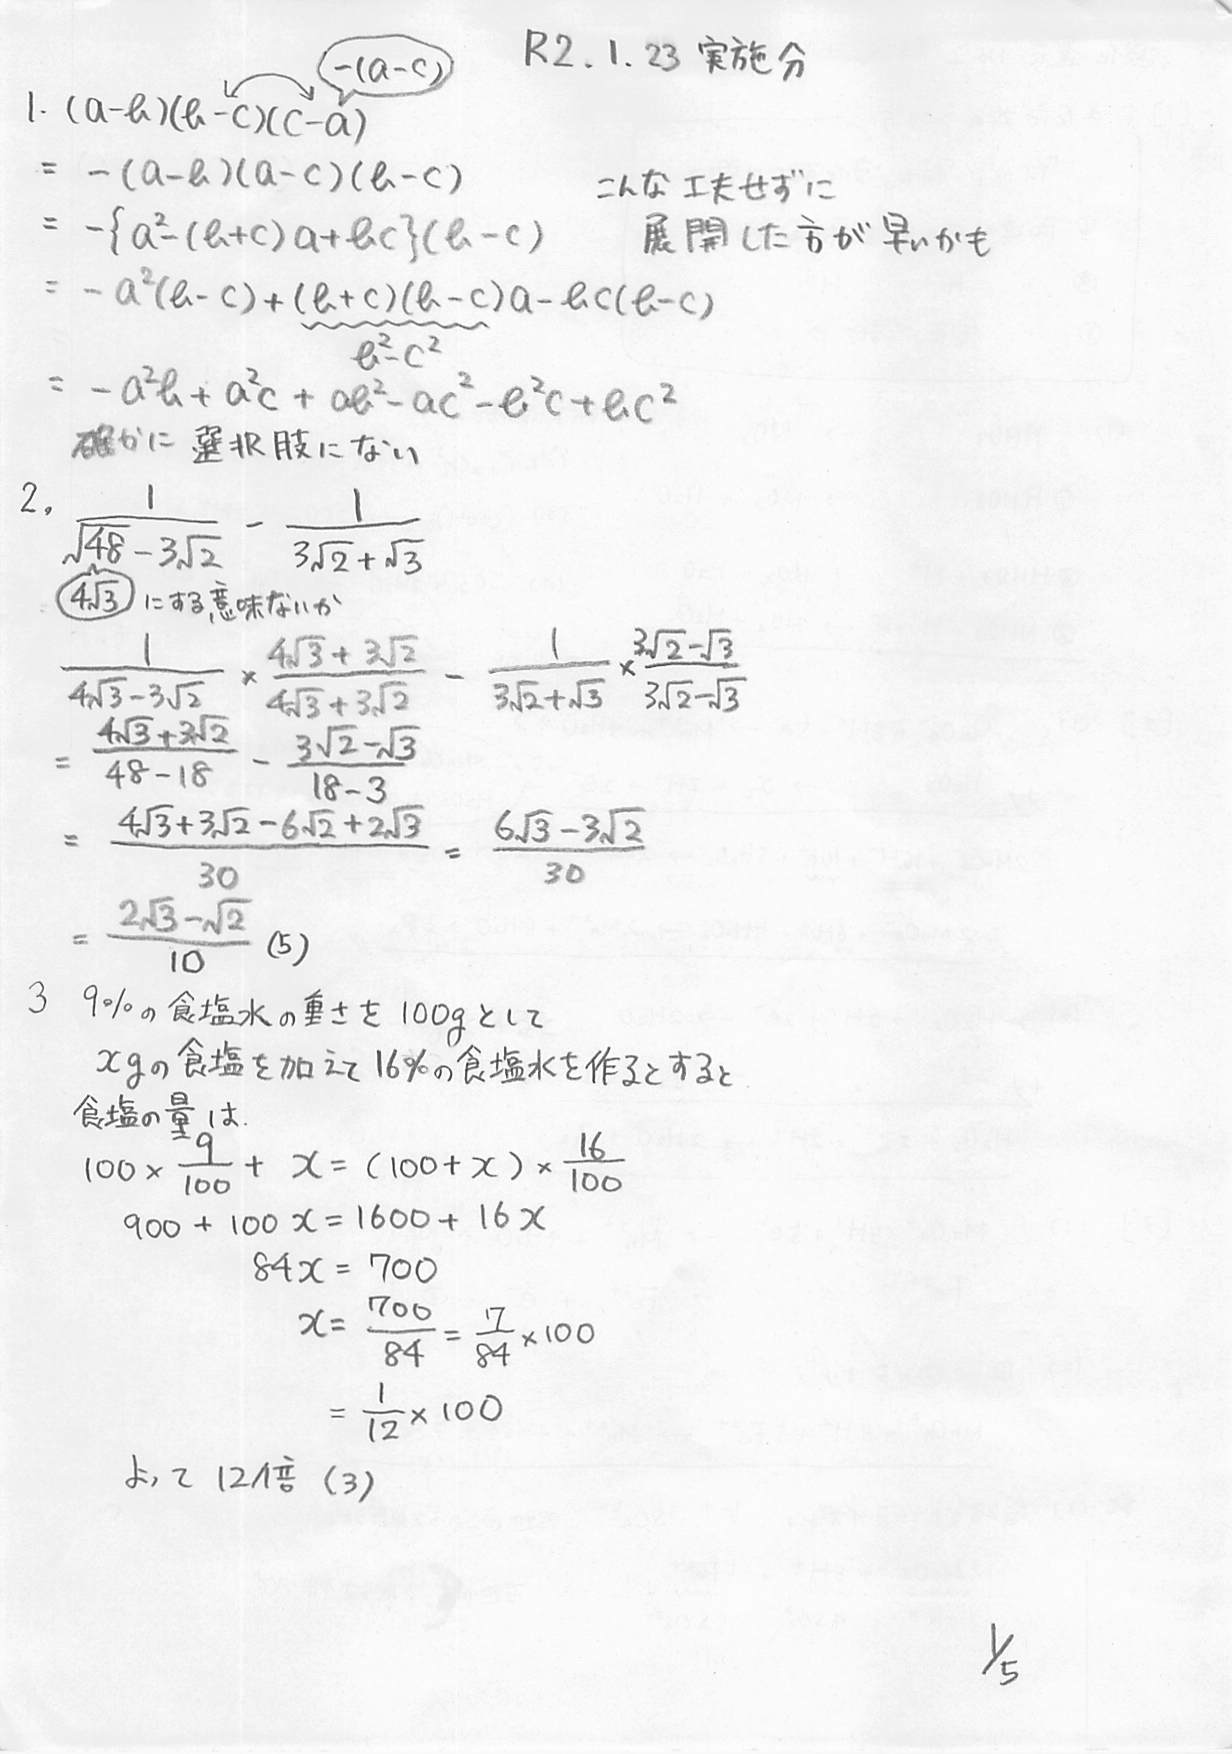 R2.1.23 実施分
-(a-c)
1. (a-b)(b-c)(c-a)
= -(a-b)(a-c)(b-c)
こんな工夫せずに
= -{a²-(b+c)a+bc}(b-c)
展開した方が早いかも
= -a²(b-c)+(b+c)(b-c)a-bc(b-c)
b²-c²
= -a²b+a²c+ab²-ac²-b²c+bc²
確かに選択肢にない
2. 1/(√48-3√2) - 1/(3√2+√3)
4√3 にする意味ないか
1/(4√3-3√2) × (4√3+3√2)/(4√3+3√2) - 1/(3√2+√3) × (3√2-√3)/(3√2-√3)
= (4√3+3√2)/(48-18) - (3√2-√3)/(18-3)
= (4√3+3√2-6√2+2√3)/30 = (6√3-3√2)/30
= (2√3-√2)/10 (5)
3 9%の食塩水の重さを100gとして
xgの食塩を加えて16%の食塩水を作るとすると
食塩の量は
100×9/100 + x = (100+x)×16/100
900+100x=1600+16x
84x=700
x=700/84=7/84×100
=1/12×100
よって12倍 (3)
1/5